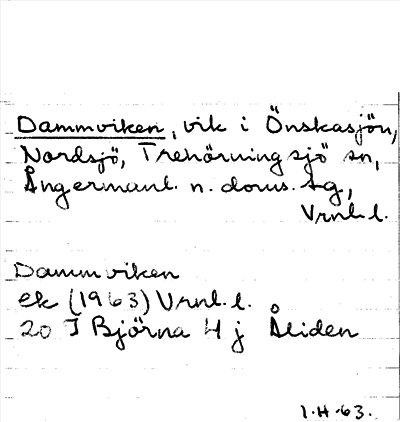 Dammviken, vik i Önskasjön,
Nordsjö, Trehörningsjö sn,
Ångermanl. n. doms. sg,
Vrnl. l.
Dammviken
ek (1963) Vrnl. l.
20 I Björna 4 j Åliden
1.H.63.